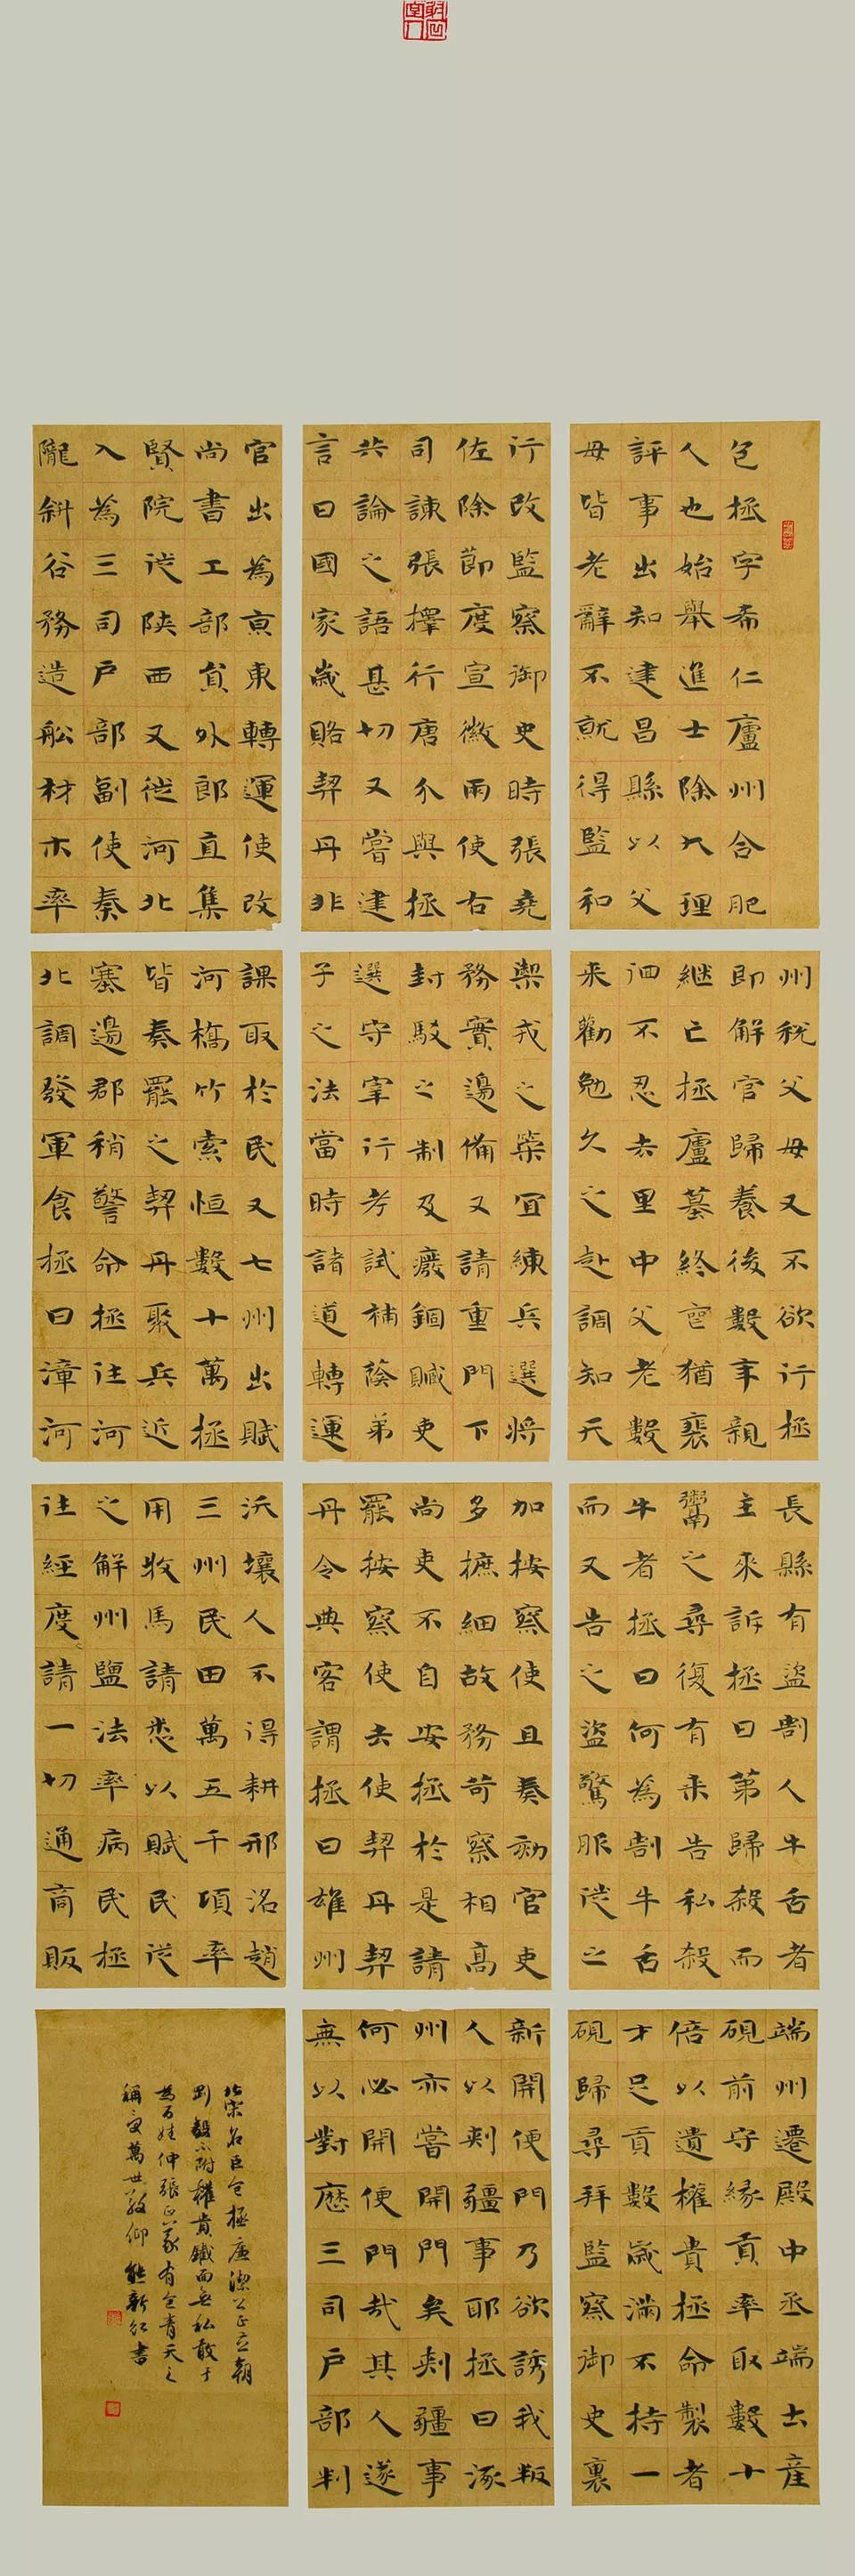 包拯字希仁廬州合肥
人也始舉進士除大理
評事出知建昌縣以父
母皆老辭不就得監和
州稅父母又不欲行拯
即解官歸養後數年親
繼亡拯廬墓終喪猶裴
徊不忍去里中父老數
來勸勉久之赴調知天
長縣有盜割人牛舌者
主來訴拯曰第歸殺而
鬻之尋復有來告私殺
牛者拯曰何為割牛舌
而又告之盜驚服徙之
端州遷殿中丞端土產
硯前守緣貢率取數十
倍以遺權貴拯命製者
才足貢數歲滿不持一
硯歸尋拜監察御史裏
行改監察御史時張堯
佐除節度宣徽兩使右
司諫張擇行唐介與拯
共論之語甚切又嘗建
言曰國家歲賂契丹非
禦戎之策宜練兵選將
務實邊備又請重門下
封駁之制及廢錮贓吏
選守宰行考試補蔭弟
子之法當時諸道轉運
加按察使且奏劾官吏
多摭細故務苛察相高
尚吏不自安拯於是請
罷按察使去使契丹契
丹令典客謂拯曰雄州
新開便門乃欲誘我叛
人以刺疆事耶拯曰涿
州亦嘗開門矣刺疆事
何必開便門哉其人遂
無以對歷三司戶部判
官出為京東轉運使改
尚書工部員外郎直集
賢院徙陝西又徙河北
入為三司戶部副使秦
隴斜谷務造船材木率
課取於民又七州出賦
河橋竹索恒數十萬拯
皆奏罷之契丹聚兵近
塞邊郡稍警命拯往河
北調發軍食拯曰漳河
沃壤人不得耕邢洺趙
三州民田萬五千頃率
用牧馬請悉以賦民從
之解州鹽法率病民拯
往經度請一切通商販
北宋名臣包拯廉潔公正立朝
剛毅不附權貴鐵面無私敢于
為百姓伸張正義有包青天之
稱受萬世敬仰 熊新紅書